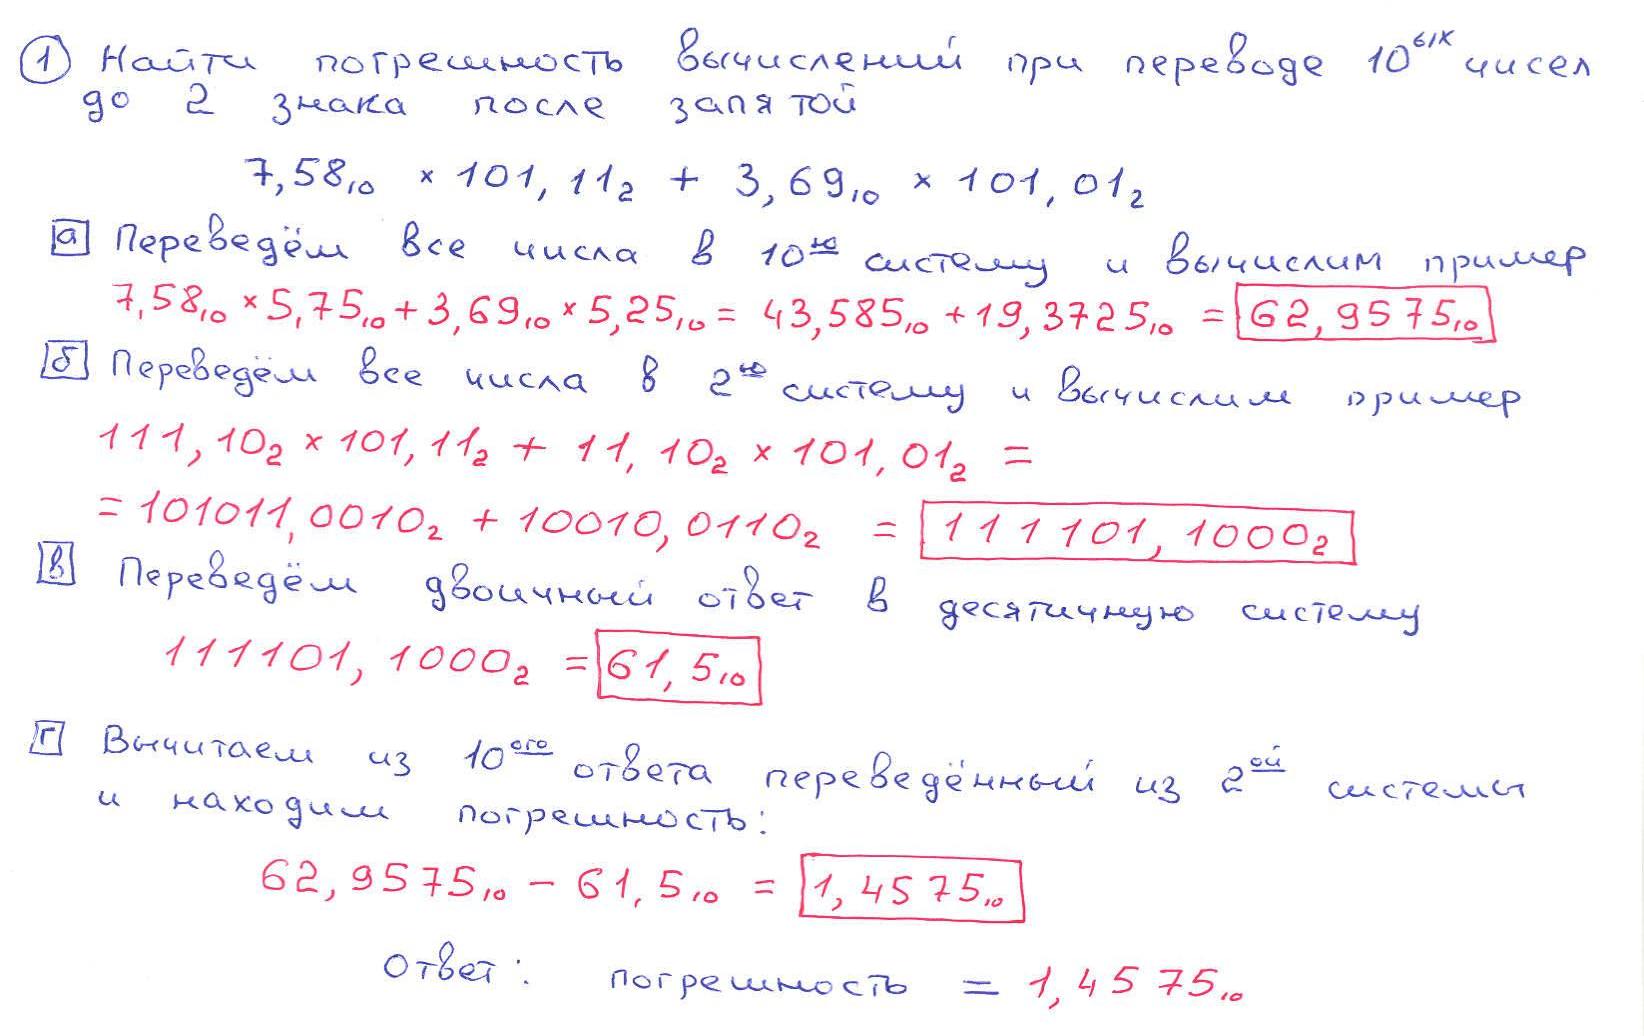 ① Найти погрешность вычислений при переводе 10ых чисел
до 2 знака после запятой
7,58₁₀ × 101,11₂ + 3,69₁₀ × 101,01₂
а Переведём все числа в 10ю систему и вычислим пример
7,58₁₀ × 5,75₁₀ + 3,69₁₀ × 5,25₁₀ = 43,585₁₀ + 19,3725₁₀ = 62,9575₁₀
б Переведём все числа в 2ю систему и вычислим пример
111,10₂ × 101,11₂ + 11,10₂ × 101,01₂ =
= 101011,0010₂ + 10010,0110₂ = 111101,1000₂
в Переведём двоичный ответ в десятичную систему
111101,1000₂ = 61,5₁₀
г Вычитаем из 10ого ответа переведённый из 2ой системы
и находим погрешность:
62,9575₁₀ − 61,5₁₀ = 1,4575₁₀
Ответ: погрешность = 1,4575₁₀